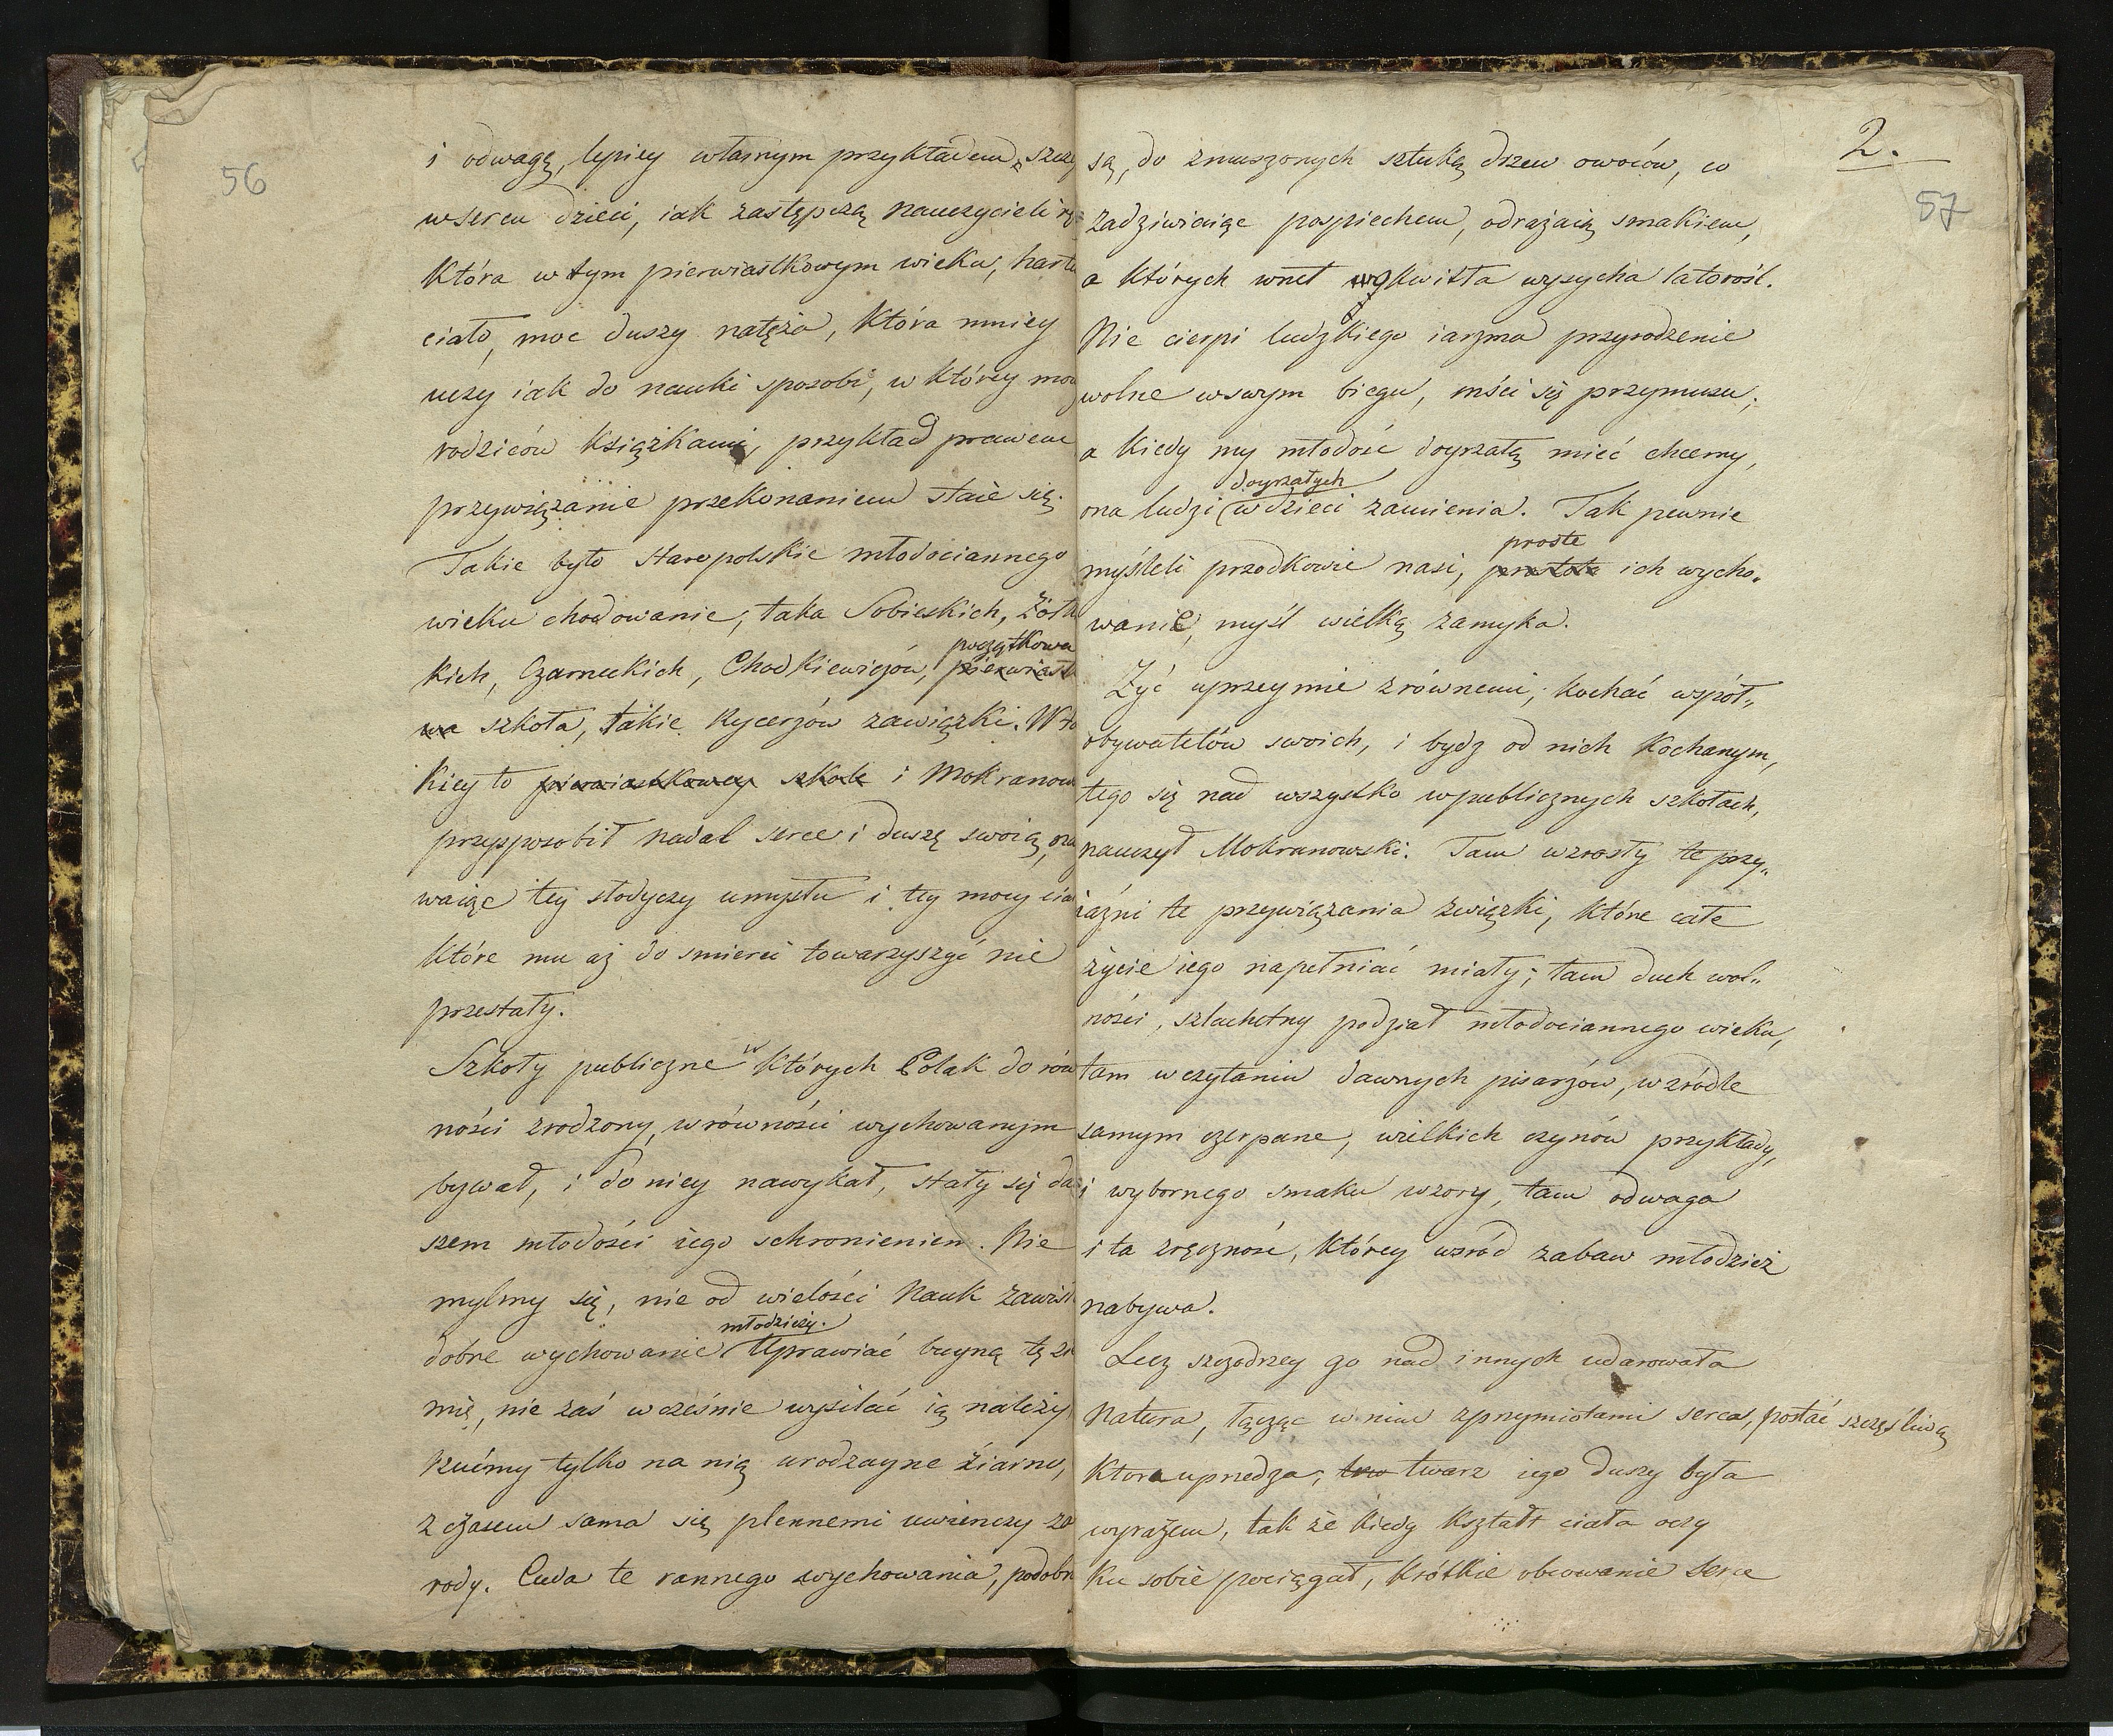 56
i odwagę, lepiey własnym przykładem, szcze
w sercu dzieci, iak zastępczą nauczycieli rę
Która w tym pierwiastkowym wieku, hartu
ciało, moc duszy natęża, Która mniey
uczy iak do nauki sposobi, w Którey mo
rodziców Książkami, przykład prawem
przywiązanie przekonaniem staie się.
Takie było staropolskie młodociannego
wieku chodowanie, taka Sobieskich, Żół
początkowa
kich, Czarneckich, Chodkiewiczów, pierwiast
wa szkoła, takie Rycerzów zawiązki. W ta
Kiey to pierwiastkowey szkole i Mokranow
przysposobił nadal serce i duszę swoią, na
waiąc tey słodyczy umysłu i tey mocy cia
Które mu aż do smierci towarzyszyć nie
przestały.
Szkoły publiczne w Których Polak do rów
ności zrodzony, w równości wychowanym
bywał, i do niey nawykał, stały się da
szem młodości iego schronieniem. Nie
mylmy się, nie od wielości Nauk zawis
młodzieży.
dobre wychowanie Uprawiać buyną tę zi
mię, nie zaś wcześnie wysilać ią należy
Rzućmy tylko na nią urodzayne źiarno,
z czasem sama się plennemi uwieńczy za
rody. Cuda te rannego wychowania, podobn
2.
57
są, do zmuszonych sztuką drzew owoców, co
zadziwiaiąc pospiechem, odrażaią smakiem,
a których wnet wykwitła wysycha latorośl.
Nie cierpi ludzkiego iarzma przyrodzenie
wolne w swym biegu, mści się przymusu;
a Kiedy my młodość doyrzałą mieć chcemy,
doyrzałych
ona ludzi w dzieci zamienia. Tak pewnie
proste
myśleli przodkowie nasi, prostota ich wycho„
wanie, myśl wielką zamyka.
Żyć uprzeymie z równemi, kochać współ„
obywatelów swoich, i bydz od nich Kochanym,
tego się nad wszystko w publicznych szkołach,
nauczył Mokranowski. Tam wzrosły te przy„
iaźni te przywiązania związki, które całe
życie iego napełniać miały; tam duch wol„
ności, szlachetny podział młodociannego wieku,
tam w czytaniu dawnych pisarzów, w zródle
samym czerpane, wielkich czynów przykłady,
i wybornego smaku wzory, tam odwaga
i ta zręczność, Którey wsród zabaw młodzież
nabywa.
Lecz szczodrzey go nad innych udarowała
Natura, łącząc w nim z przymiotami serca, postać szczęśliwą
Ktora uprzedza; trw twarz iego duszy była
wyrazem, tak że kiedy Kształt ciała oczy
Ku sobie pociągał, Krótkie obcowanie serce